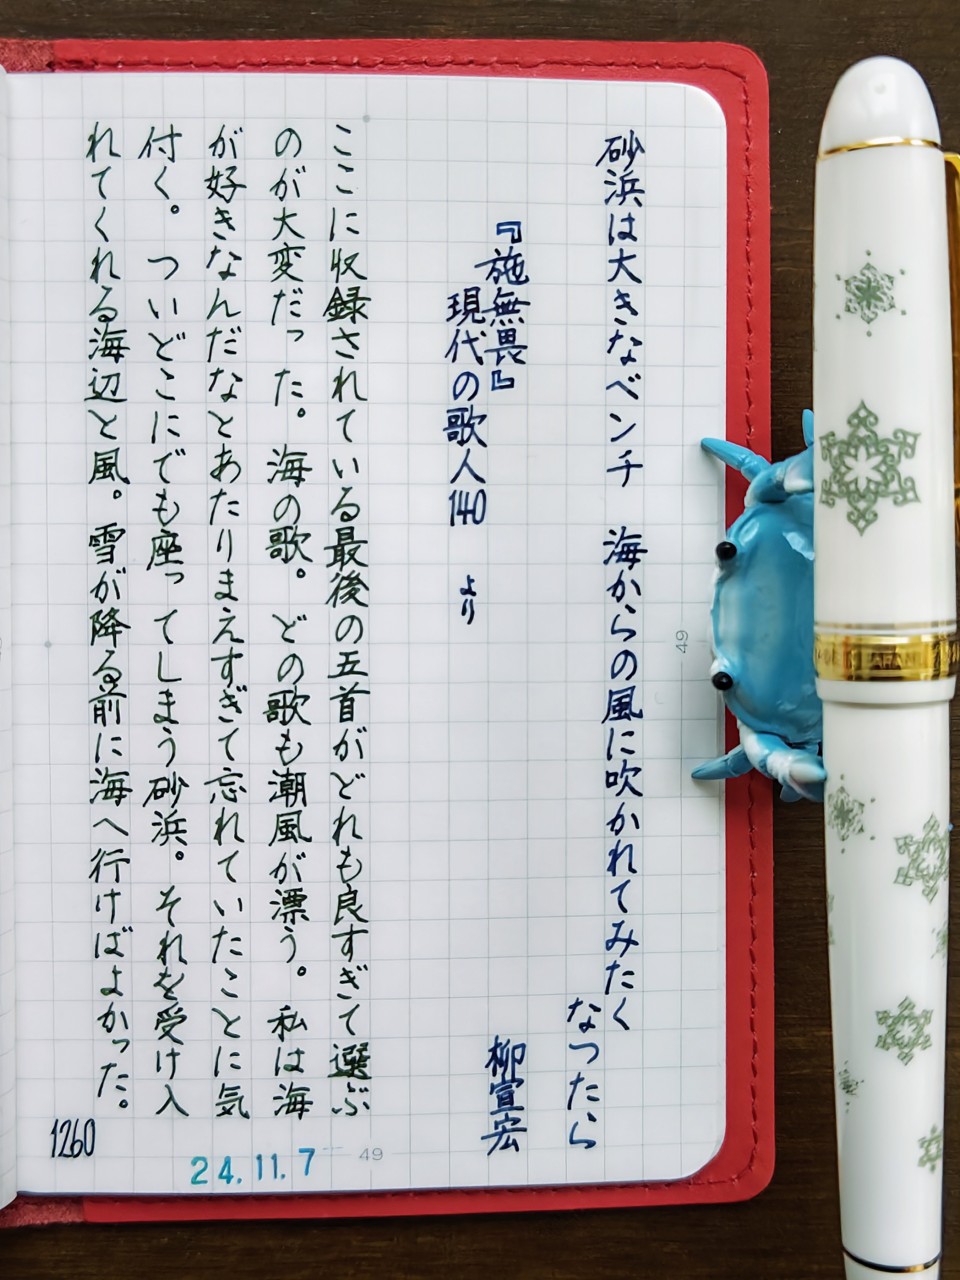 砂浜は大きなベンチ　海からの風に吹かれてみたく
なつたら
柳宣宏
『施無畏』
現代の歌人140　より
ここに収録されている最後の五首がどれも良すぎて選ぶ
のが大変だった。海の歌。どの歌も潮風が漂う。私は海
が好きなんだなとあたりまえすぎて忘れていたことに気
付く。ついどこにでも座ってしまう砂浜。それを受け入
れてくれる海辺と風。雪が降る前に海へ行けばよかった。
1260
24.11.7
49
49